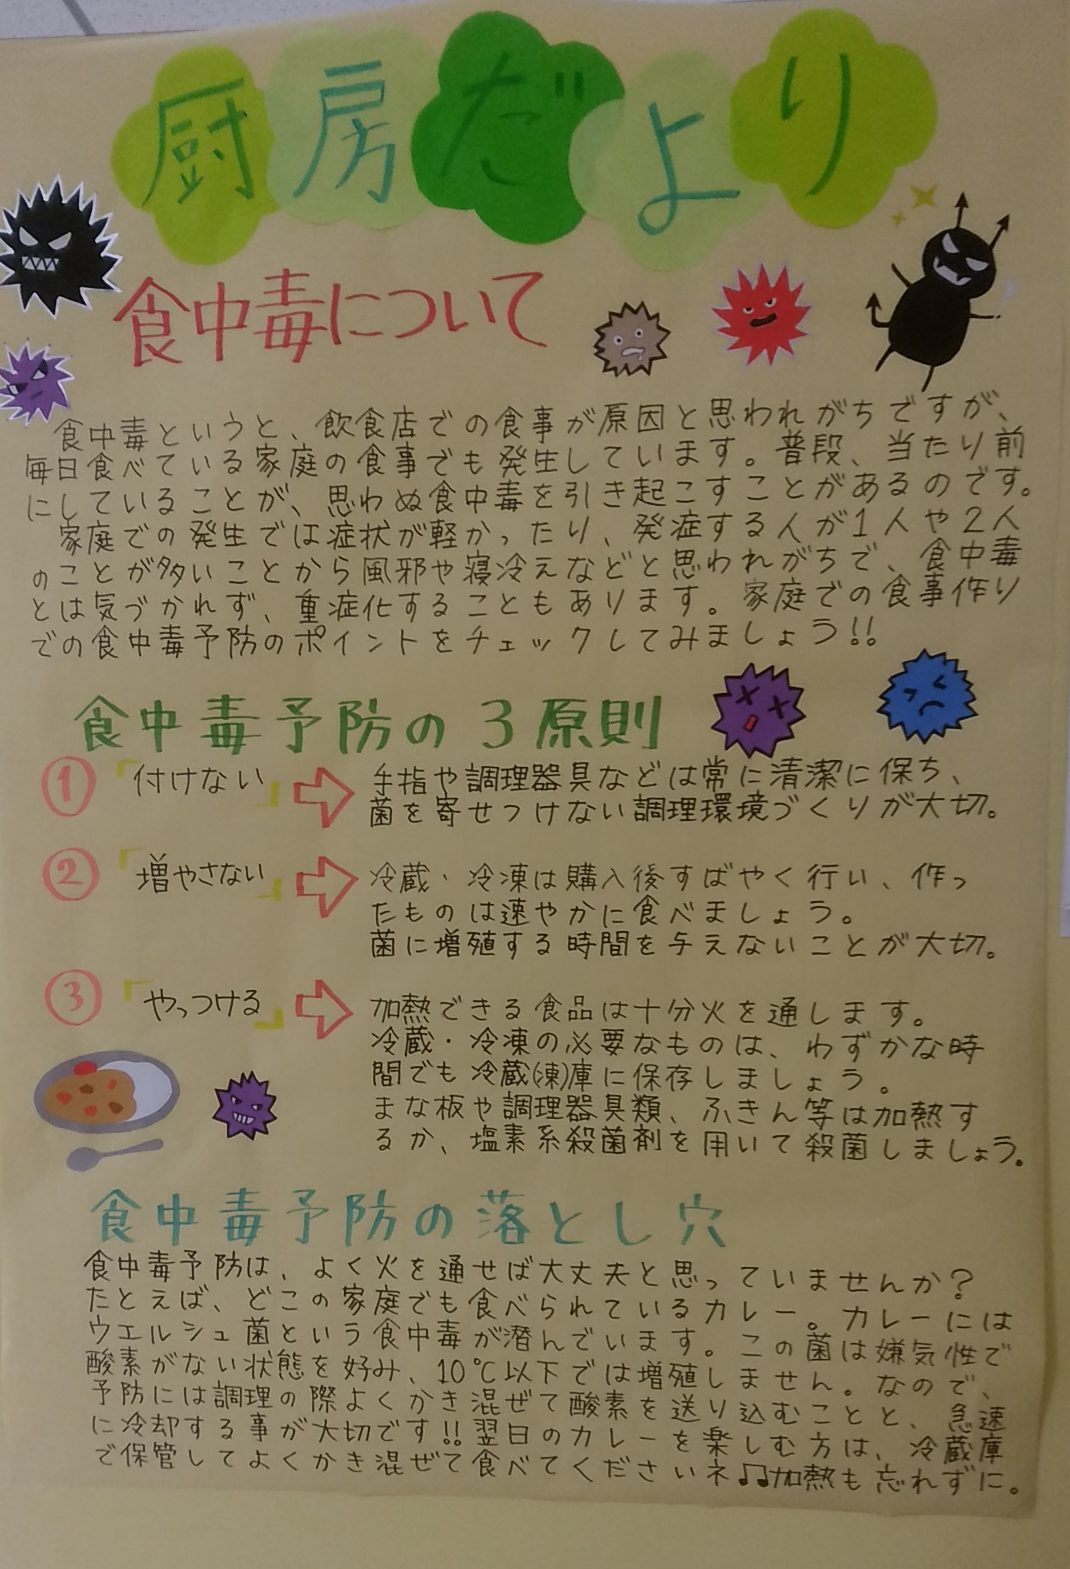 厨房だより
食中毒について
食中毒というと、飲食店での食事が原因と思われがちですが、
毎日食べている家庭の食事でも発生しています。普段、当たり前
にしていることが、思わぬ食中毒を引き起こすことがあるのです。
家庭での発生では症状が軽かったり、発症する人が1人や2人
のことが多いことから風邪や寝冷えなどと思われがちで、食中毒
とは気づかれず、重症化することもあります。家庭での食事作り
での食中毒予防のポイントをチェックしてみましょう!!
食中毒予防の3原則
① 「付けない」 ⇨ 手指や調理器具などは常に清潔に保ち、
菌を寄せつけない調理環境づくりが大切。
② 「増やさない」 ⇨ 冷蔵・冷凍は購入後すばやく行い、作っ
たものは速やかに食べましょう。
菌に増殖する時間を与えないことが大切。
③ 「やっつける」 ⇨ 加熱できる食品は十分火を通します。
冷蔵・冷凍の必要なものは、わずかな時
間でも冷蔵(凍)庫に保存しましょう。
まな板や調理器具類、ふきん等は加熱す
るか、塩素系殺菌剤を用いて殺菌しましょう。
食中毒予防の落とし穴
食中毒予防は、よく火を通せば大丈夫と思っていませんか?
たとえば、どこの家庭でも食べられているカレー。カレーには
ウエルシュ菌という食中毒が潜んでいます。この菌は嫌気性で
酸素がない状態を好み、10℃以下では増殖しません。なので、
予防には調理の際よくかき混ぜて酸素を送り込むことと、急速
に冷却する事が大切です!!翌日のカレーを楽しむ方は、冷蔵庫
で保管してよくかき混ぜて食べてくださいネ♫加熱も忘れずに。